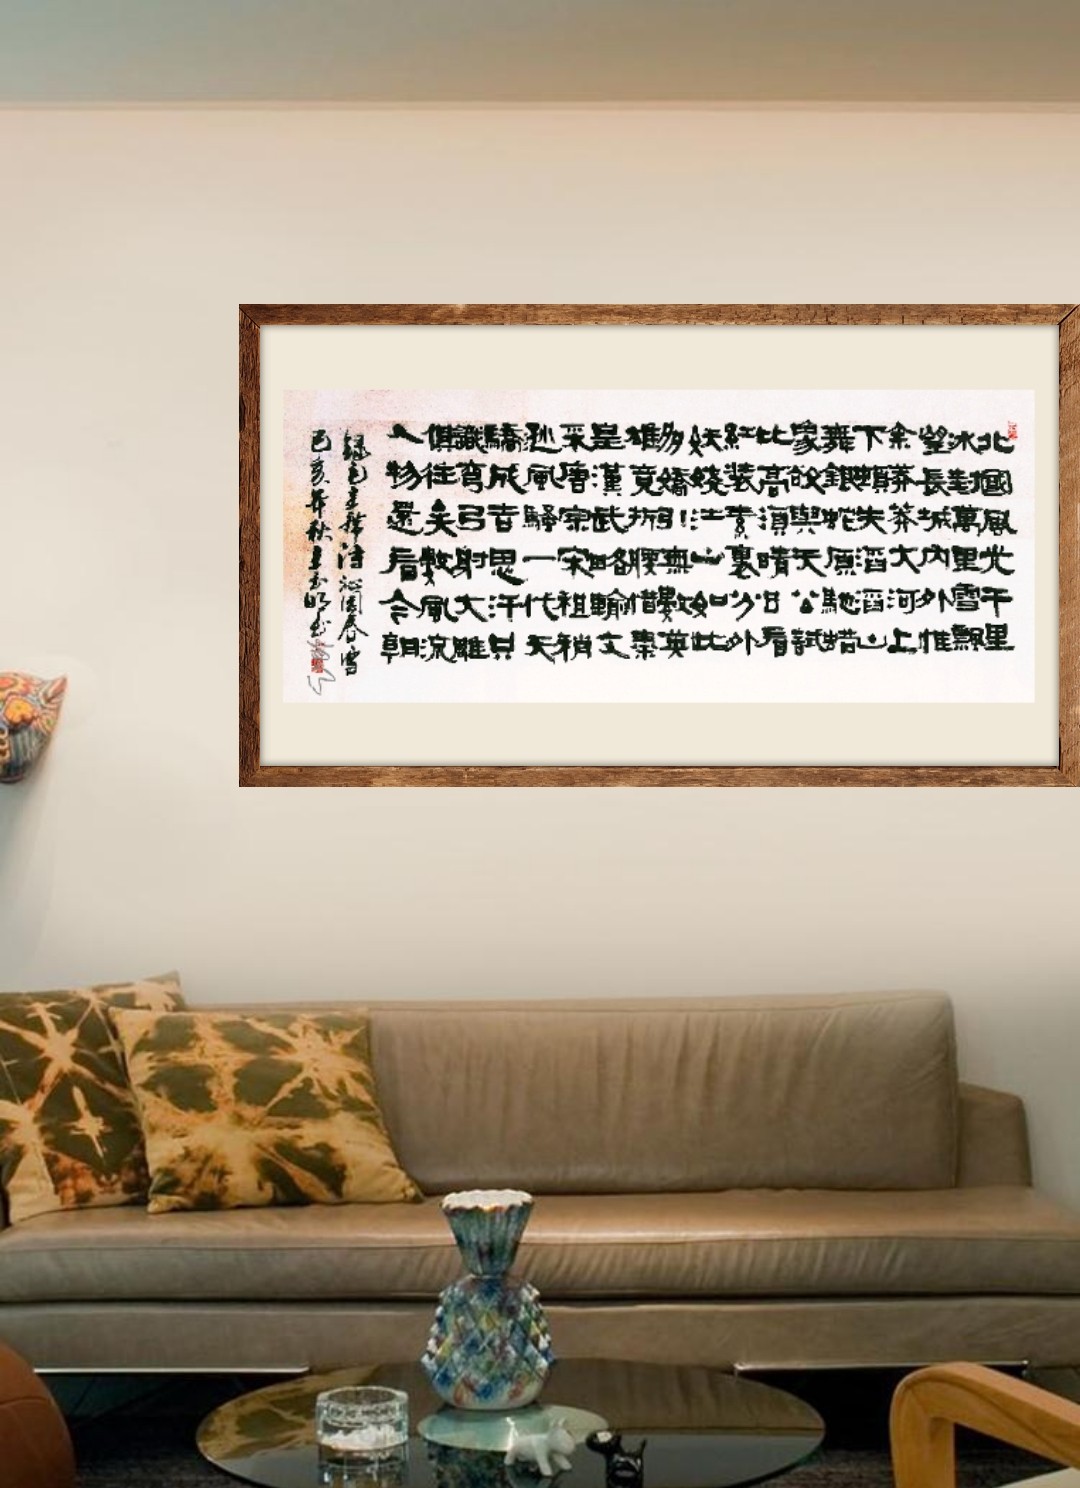 北國風光千里
冰封萬里雪飄
望長城内外惟
余莽莽大河上
下頓失滔滔山
舞銀蛇原馳蜡
象欲與天公試
比高須晴日看
紅装素裹分外
妖嬈江山如此
多嬌引無數英
雄竟折腰惜秦
皇漢武略輸文
采唐宗宋祖稍
逊風騷一代天
驕成吉思汗只
識彎弓射大雕
俱往矣數風流
人物還看今朝
録毛主席詩沁園春雪
己亥年秋王玉明書